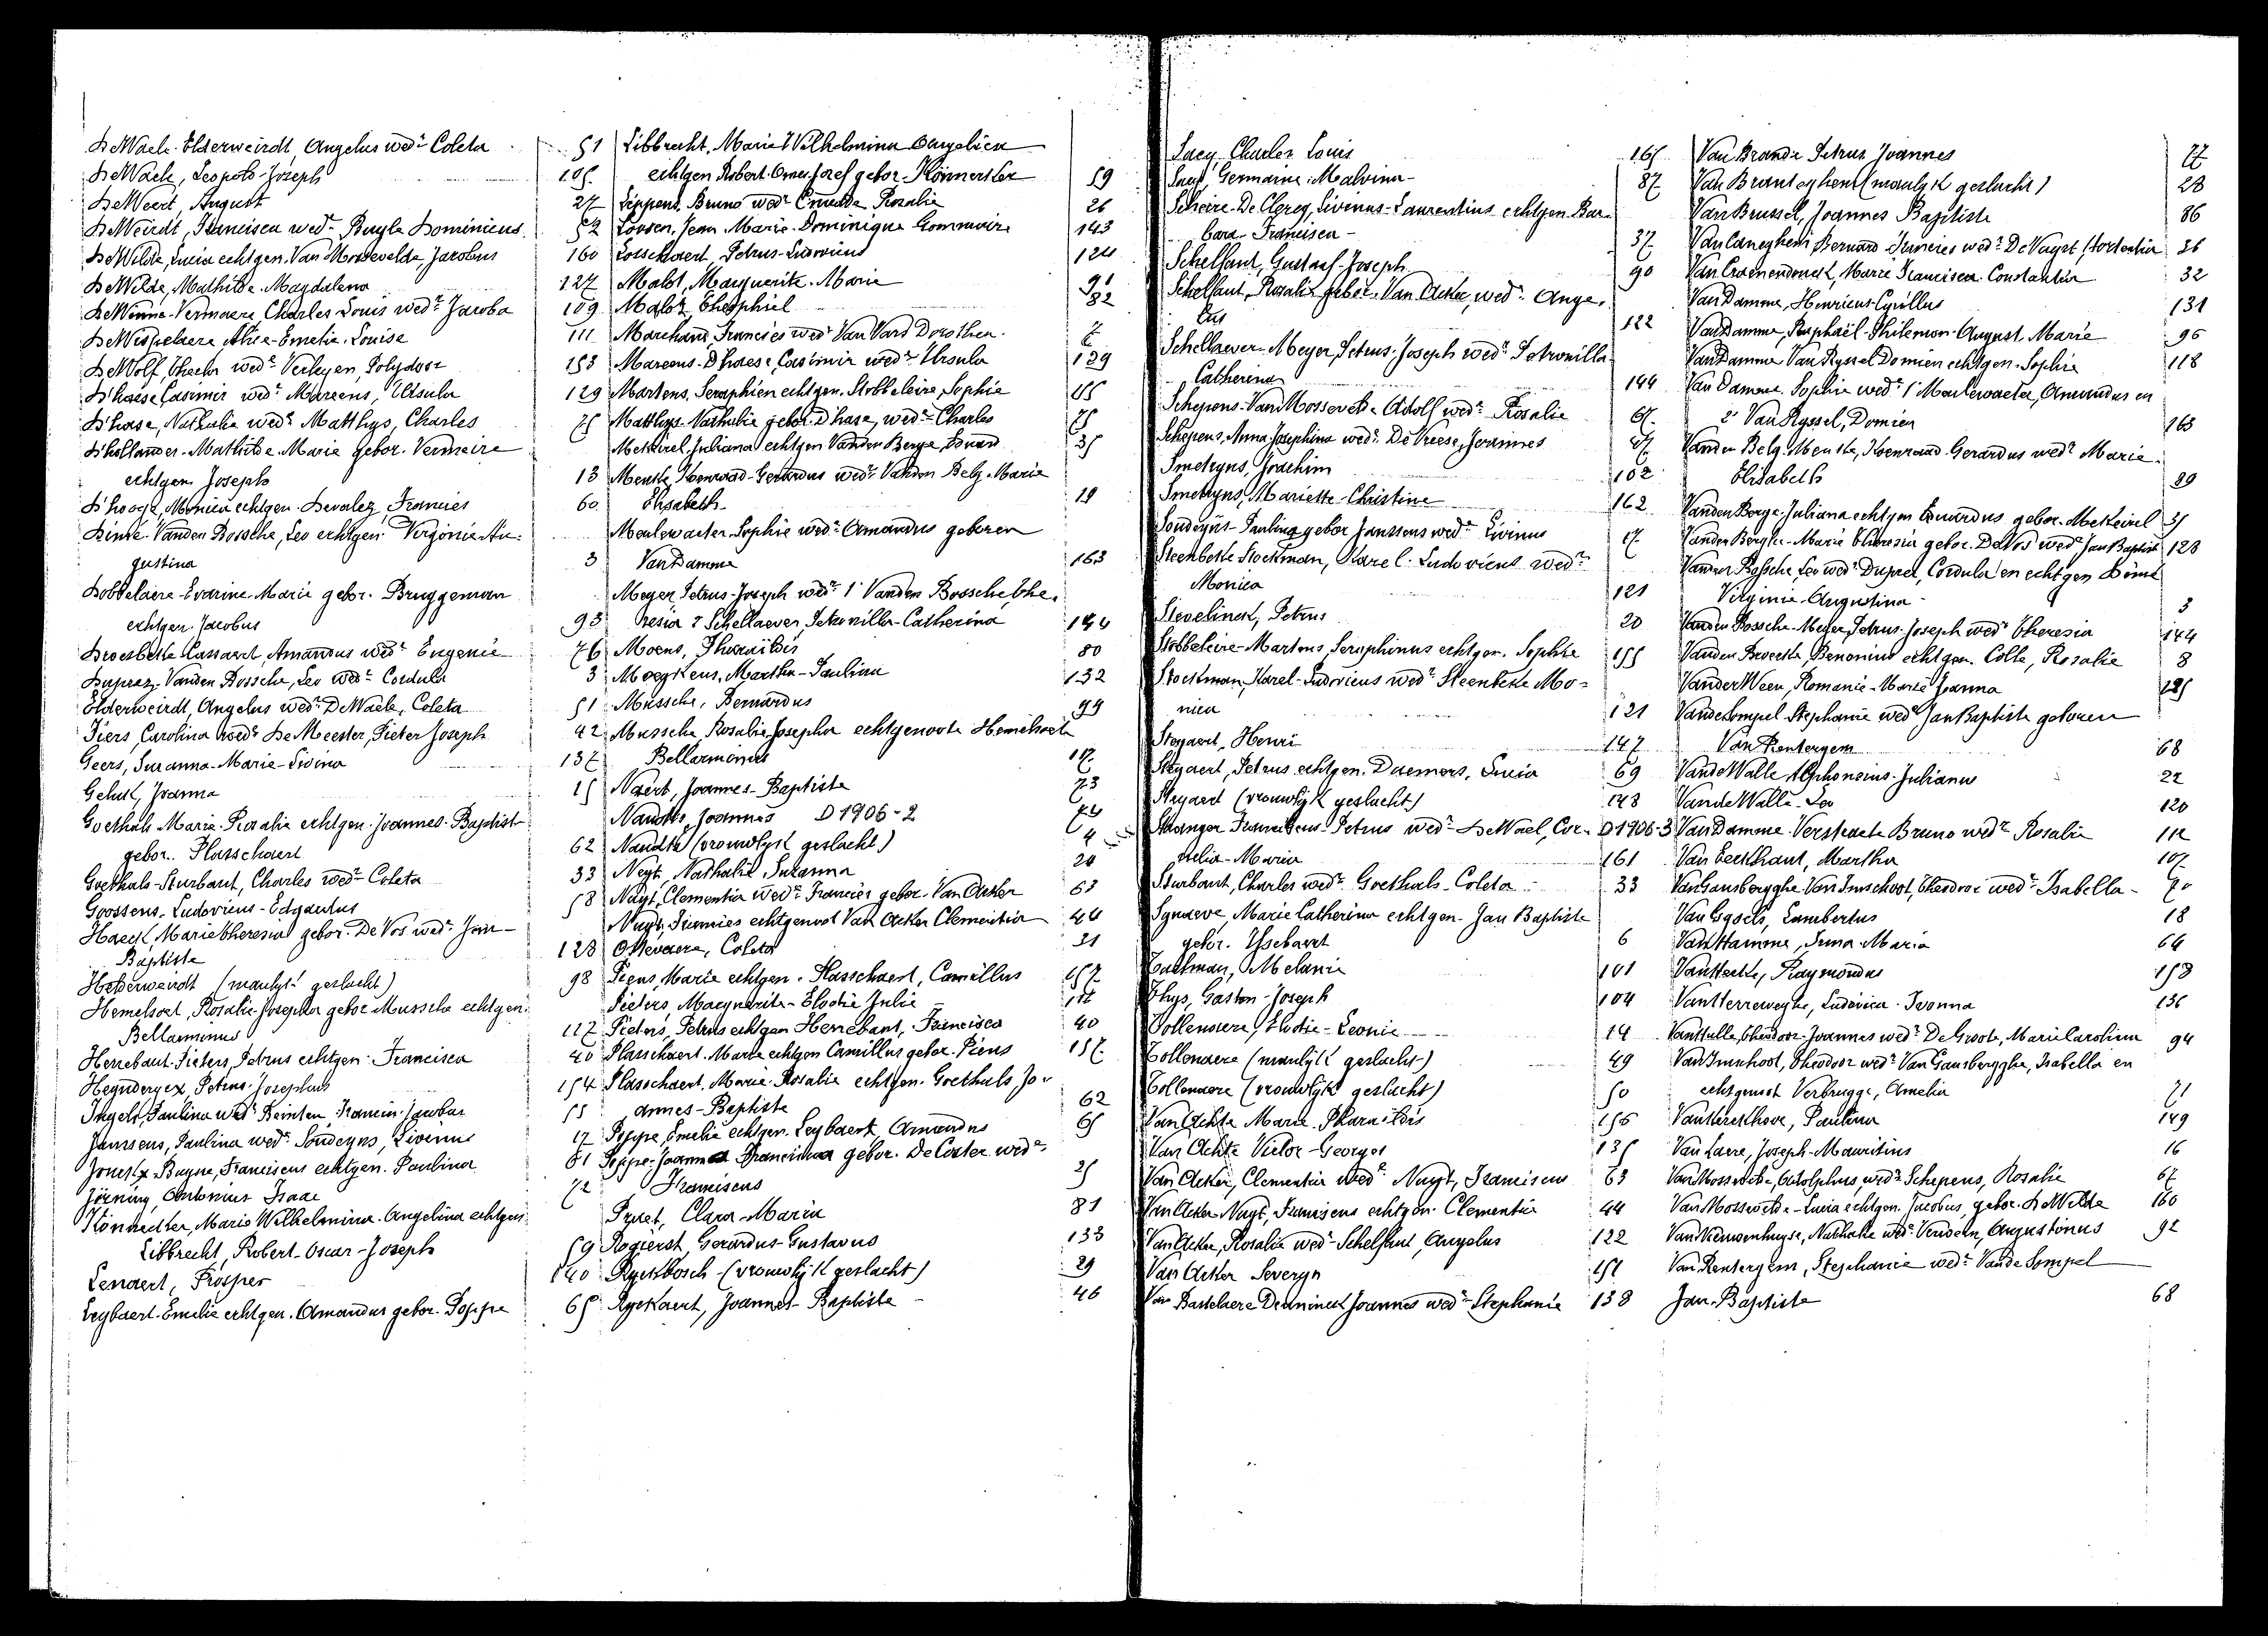 DeWaele-Elderweirdt, Angelus wedr Coleta 51
DeWaele, Leopold-Joseph 105
DeWeert, August 27
DeWeirdt, Francisca wedr Buyle Dominicus 52
DeWilde, Lucia echtgen. Van Mossevelde, Jacobus 160
DeWilde, Mathilde-Magdalena 127
DeWinne-Vermaere Charles Louis wedr Jacoba 109
DeWispelaere Alice-Emelie-Louise 111
DeWolf, Theclor wedr Verleyen, Polydoor 153
D'haese Casimir wedr Mareens, Ursula 129
D'hase, Nathalia wedr Matthys, Charles 75
D'hollander-Mathilde Marie gebor. Vermeire
echtgen. Joseph 13
D'hooge, Monica echtgen. Devalez, Francies 60
Dinté-Vanden Bossche, Leo echtgen. Virginie Au-
gustina 3
Dobbelaere-Evarine-Marie gebor. Bruggeman
echtgen. Jacobus 93
Droesbeke Cassaert, Amandus wedr Eugenie 76
Duprez-Vanden Bossche, Leo wedr Cordula 3
Elderweirdt, Angelus wedr DeWaele, Coleta 51
Fiers, Carolina wedr De Meester, Pieter Joseph 42
Geers, Suzanna-Marie-Livina 137
Gehuk, Joanna 15
Goethals Marie-Rosalia echtgen. Joannes-Baptist
gebor. Plasschaert 62
Goethals-Sturbaut, Charles wedr Coleta 33
Goossens-Ludovicus-Edgardus 58
Haeck, Marie Theresia gebor. De Vos wedr Jan-
Baptiste 128
Helderweirdt (manlyk geslacht) 98
Hemelsoet, Rosalie-Josepha gebor Mussche echtgen.
Bellarminus 117
Herrebaut-Pieters, Petrus echtgen. Francisca 40
Heynderyex, Petrus-Josephus 154
Ingels, Paulina wedr Reinten Francis-Jacobus 55
Janssens, Paulina wedr Sondeyns, Livinus 17
Jonckx-Buysse, Franciscus echtgen. Paulina 81
Jörning, Antonius Isaac 72
Könnecker, Marie Wilhelmina-Angelina echtgen.
Libbrecht, Robert-Oscar-Joseph 59
Lenaert, Prosper 140
Leybaert-Emelie echtgen. Amandus gebor. Poppe 65
Libbrecht, Marie Wilhelmina Angelica
echtgen Robert-Omer-Josef gebor. Könnersler 59
Lippens, Bruno wedr Coucke Rosalie 26
Loosen, Jean Marie-Dominique Gommaire 143
Losschaert, Petrus-Ludovicus 124
Mabt, Marguerite-Marie 91
Mabt Theophiel 82
Marchand, Francies wedr Van Vard Dorothea 2
Mareens-Dhaese, Casimir wedr Ursula 129
Martens, Seraphien echtgen. Stobbeleire, Sophie 155
Matthys-Nathalie gebor. Dhase, wedr Charles 75
Metkeirel, Juliana echtgen Vanden Berge, Eduard 35
Menthe, Koenraad-Gerardus wedr Vanden Belg-Marie
Elisabeth 19
Meulewaeter, Sophie wedr Amandus geboren
Van Damme 163
Meyer Petrus-Joseph wedr 1° Vanden Bossche, The-
resia 2 Schellaever, Petronilla-Catherina 144
Moens, Pharaïldis 80
Moeykens, Martha-Paulina 132
Mussche, Bernardus 99
Mussche, Rosalie Josepha echtgenoote Hemelsoet
Bellarminus 117
Naert, Joannes-Baptiste 73
Naudts, Joannes D 1906-2
Naudts (vrouwlyk geslacht) 4
Neyt, Nathalie Suzanna 20
Nuyt, Clementia wedr Francies gebor. Van Acker 63
Nuyt, Francies echtgenoot Van Acker Clementia 44
Ottevaere, Coleta 31
Piens, Marie echtgen. Plasschaert, Camillus 157
Pieters, Marguerite-Elodie Julie 112
Pieters, Petrus echtgen Herrebaut, Francisca 40
Plasschaert. Marie echtgen Camillus gebor. Piens 157
Plasschaert, Marie-Rosalie echtgen. Goethals, Jo-
annes-Baptiste 62
Poppe, Emelie echtgen. Leybaert, Amandus 65
Poppe-Joanna Francisca gebor. De Coster wedr
Franciscus 25
Pruet, Clara-Maria 81
Rogierst, Gerardus-Gustavus 133
Ryckbosch-(vrouwlyk geslacht) 29
Ryckaert, Joannes-Baptiste 46
Saey Charles Louis 165
Saey, Germaine-Malvina 87
Scheire-De Clercq, Livinus-Laurentius echtgen. Bar-
bara-Francisca 37
Schelfaut, Gustaaf-Joseph 90
Schelfaut, Rosalie gebor. Van Acker, wedr Ange-
lus 122
Schellaever-Meyer, Petrus-Joseph wedr Petronilla
Catherina 144
Schepens-Van Mossevelde Adolf wedr Rosalie 67
Schepens, Anna Josephina wedr De Vreese, Joannes 47
Smetryns, Joachim 102
Smetryns, Mariette-Christine 162
Sondeyns-Paulina gebor Janssens wedr Livinus 17
Steenbeke Stockman, Karel-Ludovicus wedr
Monica 121
Stevelinck, Petrus 20
Stobbeleire-Martens, Seraphinus echtgen. Sophie 155
Stockman, Karel-Ludovicus wedr Steenbeke Mo-
nica 121
Steyaert, Henri 147
Steyaert, Petrus echtgen. Daemers, Lucia 69
Steyaert (vrouwlyk geslacht) 148
Stroanger Franciscus-Petrus wedr DeWael, Cor- D 1906-3
nelia-Maria 161
Sturbaut, Charles wedr Goethals-Coleta 33
Synaeve, Marie Catherina echtgen. Jan Baptiste
gebor. Ysebaert 6
Taelman, Melanie 101
Thys, Gaston-Joseph 104
Tollenaere, Elodie-Leonie 14
Tollenaere (manlyk geslacht) 49
Tollenaere (vrouwlyk geslacht) 50
Van Achte Marie-Pharaïldis 156
Van Achte Victor-Georges 135
Van Acker, Clementia wedr Nuyt, Franciscus 63
Van Acker-Nuyt, Franciscus echtgen. Clementia 44
Van Acker, Rosalie wedr Schelfaut, Angelus 122
Van Acker Severyn 151
Van Bastelaere Deaninck Joannes wedr Stephanie 138
Van Brande Petrus Joannes 77
Van Branteghem (manlyk geslacht) 28
Van Brussel, Joannes Baptiste 86
Van Caneghem Bernard-Francies wedr De Nuyst, Hortentia 36
Van Craenendonck, Marie Francisca-Constantia 32
Van Damme, Henricus-Cyrillus 131
Van Damme, Raphaël-Philemon-August-Marie 96
Van Damme-Van Ryssel Domien echtgen-Sophie 118
Van Damme, Sophie wedr 1° Meulewaeter, Amandus en
2° Van Ryssel, Domien 163
Vanden Belg-Menthe, Koenraad-Gerardus wedr Marie-
Elisabeth 89
Vanden Berge-Juliana echtgen Eduardus gebor. Metkeirel 35
Vanden Berghe-Marie Theresia gebor. De Vos wedr Jan Baptist 128
Vanden Bossche, Leo wedr Duprel, Cordula en echtgen Dinté
Virginie-Augustina 3
Vanden Bossche-Meyer, Petrus-Joseph wedr Theresia 144
Vanden Broecke, Benonius echtgen. Colle, Rosalie 8
Vander Veen, Romanie-Marie Joanna 125
Vande Sompel-Stephanie wedr Jan Baptiste geboren
Van Rentergem 68
Vande Walle Alphonsius-Julianus 22
Vande Walle-Leo 120
Van Damme-Verstraete Bruno wedr Rosalie 112
Van Eeckhaut, Martha 107
Van Gansbergghe-Van Imschoot, Theodoor wedr Isabella 70
Van Gysels, Lambertus 18
Van Hamme, Irma-Maria 64
Van Hecke, Raymondus 158
Van Herreweghe, Ludovica-Ivonna 136
Van Hulle, Theodoor-Joannes wedr De Groote, Marie Carolina 94
Van Imschoot, Theodoor wedr Van Gansbergghe, Isabella en
echtgenoot Verbrugge, Amelia 71
Van Kerckhove, Paulina 149
Van Laere, Joseph-Mauritius 16
Van Mossevelde, Adolphus, wedr Schepens, Rosalie 67
Van Mossevelde-Lucia echtgen. Jacobus, gebor. DeWilde 160
Van Nieuwenhuyse, Nathalie wedr Verdoen, Augustinus 92
Van Rentergem, Stephanie wedr Vande Sompel
Jan-Baptiste 68